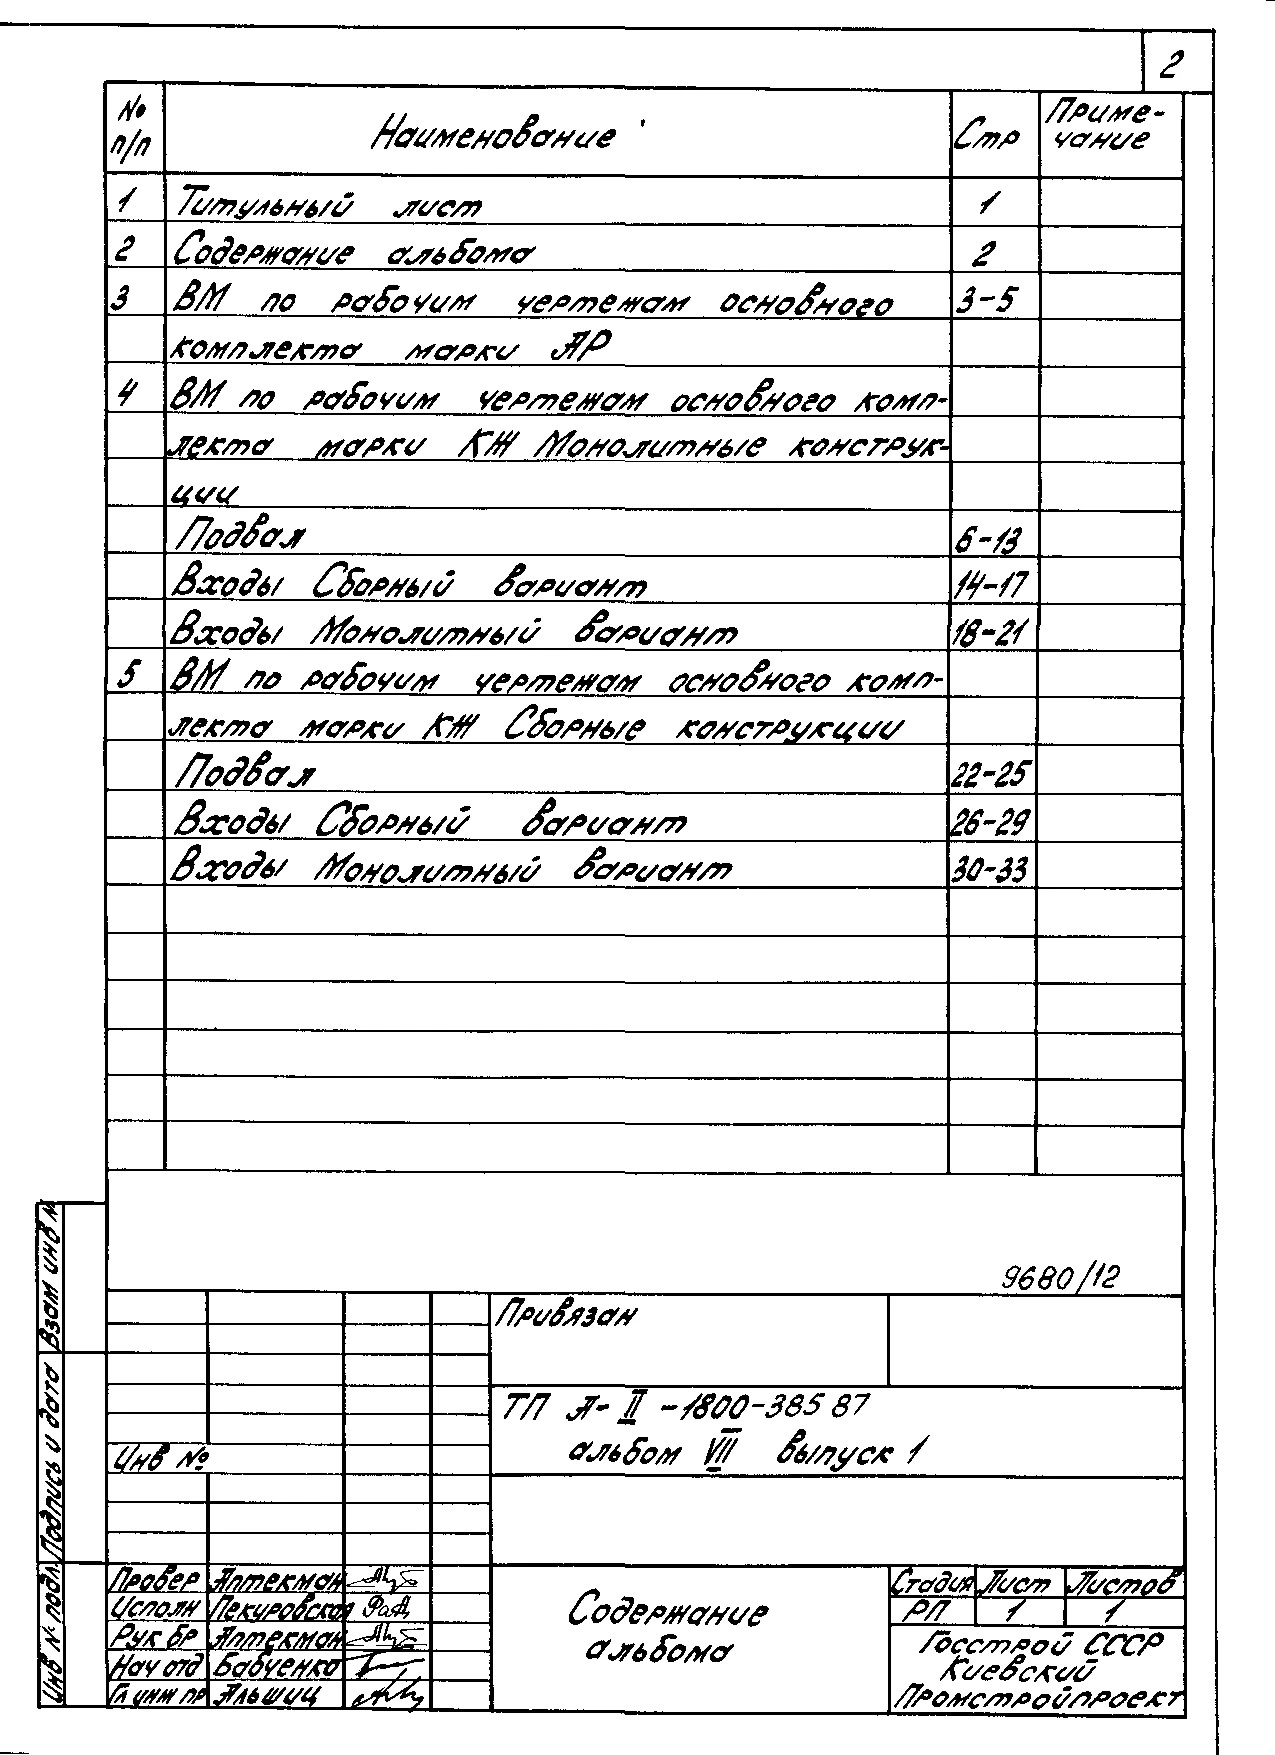 2
№ п/п Наименование Стр Приме-чание
1 Титульный лист 1
2 Содержание альбома 2
3 ВМ по рабочим чертежам основного 3-5
комплекта марки АР
4 ВМ по рабочим чертежам основного комп-
лекта марки КЖ Монолитные конструк-
ции
Подвал 6-13
Входы Сборный вариант 14-17
Входы Монолитный вариант 18-21
5 ВМ по рабочим чертежам основного комп-
лекта марки КЖ Сборные конструкции
Подвал 22-25
Входы Сборный вариант 26-29
Входы Монолитный вариант 30-33
9680/12
Привязан
ТП А-II-1800-385 87
альбом VII выпуск 1
Инв №
Провер Аптекман
Исполн Пекуровская
Рук бр Аптекман
Нач отд Бабченко
Гл инж пр Альшиц
Содержание
альбома
Стадия Лист Листов
РП 1 1
Госстрой СССР
Киевский
Промстройпроект
Взам инв №
Подпись и дата
Инв № подл.